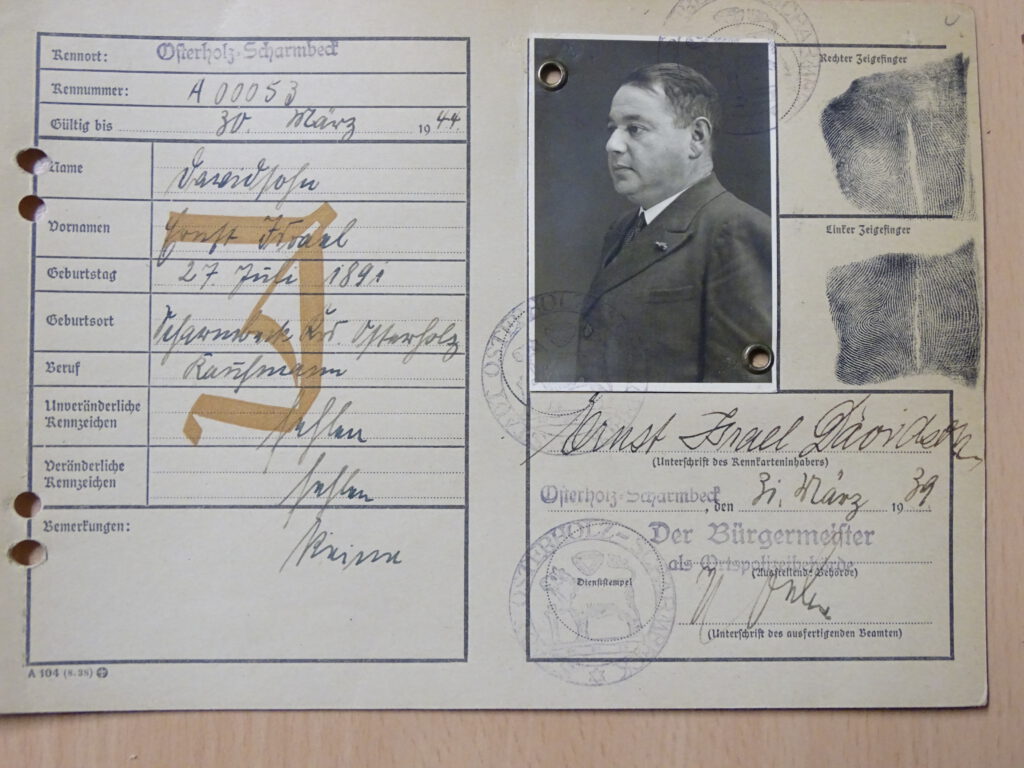 Kennort: Osterholz-Scharmbeck
Kennummer: A 00053
Gültig bis 30. März 1944.
Name Davidsohn
Vornamen Ernst Israel
J
Geburtstag 27. Juli 1891
Geburtsort Scharmbeck Krs. Osterholz
Beruf Kaufmann
Unveränderliche Kennzeichen fehlen
Veränderliche Kennzeichen fehlen
Bemerkungen: Keine
A 104 (8. 38)
Rechter Zeigefinger
Linker Zeigefinger
Ernst Israel Davidsohn
(Unterschrift des Kennkarteninhabers)
Osterholz-Scharmbeck, den 31. März 1939.
Der Bürgermeister
als Ortspolizeibehörde
(Ausstellende Behörde)
Dienststempel
(Unterschrift des ausfertigenden Beamten)
OSTERHOLZ-SCHARMBECK